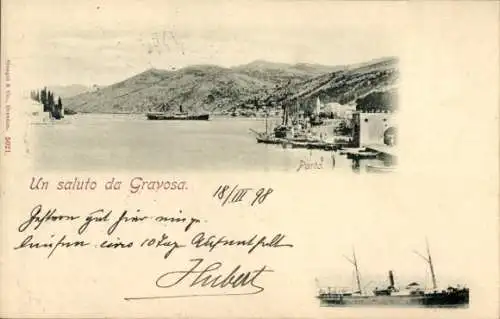 Stengel & Co., Dresden 5021.
Porto
Un saluto da Gravosa.
18/III 98
Gestern gut hier
10 Tag Aufenthalt
Hubert